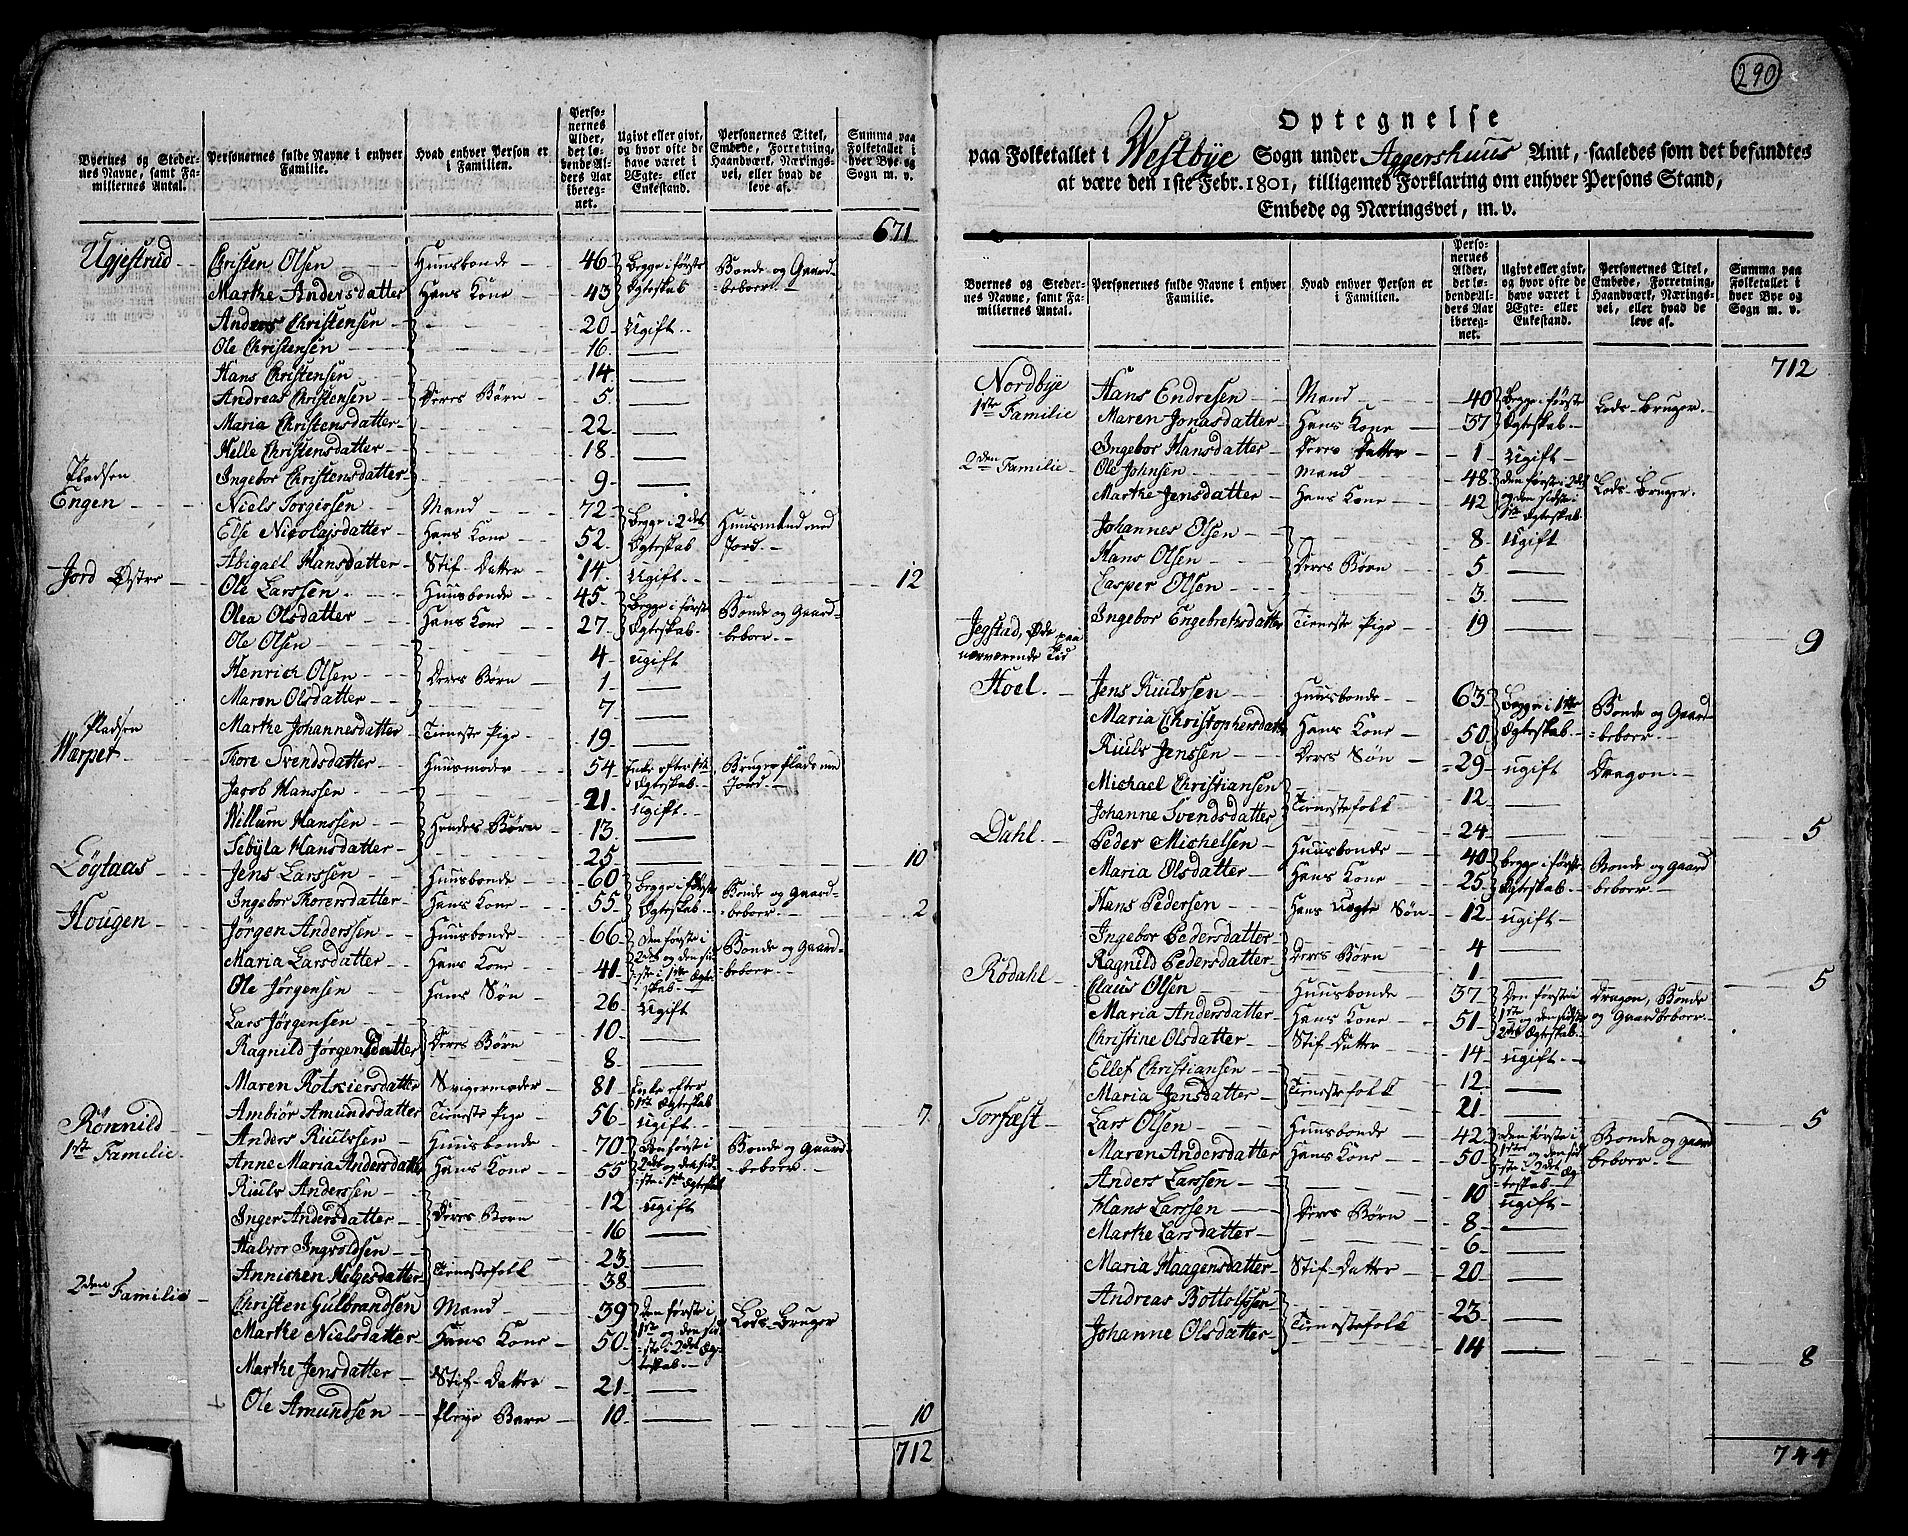 290
Byernes og Steder-
nes Navne, samt Fa-
miliernes Antal.
Personernes fulde Navne i enhver
Familie.
Hvad enhver Person er
i Familien.
Perso-
nernes
Alder,
det lø-
bende Al-
ders Aar
iberegnet.
Ugivt eller givt,
og hvor ofte de
have været i
Ægte- eller
Enkestand.
Personernes Titel,
Embede, Forretning,
Haandværk, Nærings-
vei, eller hvad de
leve af.
Summa paa
Folketallet i
hver Bye og
Sogn m. v.
671
Ugjestrud Christen Olsen Huusbonde 46 Begge i første Ægteskab Bonde og Gaardbeboer
Marthe Andersdatter Hans Kone 43
Anders Christensen 20 Ugift
Ole Christensen 16
Hans Christensen 14
Andreas Christensen Deres Børn 5
Maria Christensdatter 22
Helle Christensdatter 18
Ingebor Christensdatter 9
Pladsen
Engen Niels Torgiersen Mand 72 Begge i 2det Ægteskab Huusmand med Jord
Else Nicolajsdatter Hans Kone 52
Abigael Hansdatter Stif-Datter 14 Ugift 12
Jord Østre Ole Larssen Huusbonde 45 Begge i første Ægteskab Bonde og Gaardbeboer
Olea Olsdatter Hans Kone 27
Ole Olsen 4 ugift
Henrich Olsen Deres Børn 1
Maren Olsdatter 7
Marthe Johannesdatter Tieneste Pige 19
Pladsen
Warpet Thore Svendsdatter Huusmoder 54 Enke efter 1ste Ægteskab Bruger Plads med Jord
Jacob Hanssen 21 Ugift
Willum Hanssen Hendes Børn 13
Sebyla Hansdatter 25 10
Løgtaas Jens Larssen Huusbonde 60 Begge i første Ægteskab Bonde og Gaardbeboer
Ingebor Thorersdatter Hans Kone 55 2
Hougen Jørgen Anderssen Huusbonde 66 Den første i 2det og den sidste i 1ste Ægteskab Bonde og Gaardbeboer
Maria Larsdatter Hans Kone 41
Ole Jørgensen Hans Søn 26 Ugift
Lars Jørgensen 10
Ragnild Jørgensdatter Deres Børn 8
Maren Rotkiersdatter Svigermoder 81 Enke efter 1ste Ægteskab
Ambiør Amundsdatter Tieneste Pige 56 ugift 7
Rønnild
1ste Familie Anders Riulssen Huusbonde 70 Den første i 2det og den sidste i 1ste Ægteskab Bonde og Gaardbeboer
Anne Maria Andersdatter Hans Kone 55
Riuls Anderssen 12 ugift
Inger Andersdatter Deres Børn 16
Halvor Ingvoldsen 23
Annichen Helgesdatter Tienestefolk 38
2den Familie Christen Gulbrandsen Mand 39 Den første i 1ste og den sidste i 2det Ægteskab Lods-Bruger
Marthe Nielsdatter Hans Kone 50
Marthe Jensdatter Stif-Datter 21
Ole Amundsen Pleye Barn 10 10
712
Optegnelse
paa Folketallet i Westbye Sogn under Aggershuus Amt, saaledes som det befandtes
at være den 1ste Febr. 1801, tilligemed Forklaring om enhver Persons Stand,
Embede og Næringsvei, m. v.
Byernes og Steder-
nes Navne, samt Fa-
miliernes Antal.
Personernes fulde Navne i enhver
Familie.
Hvad enhver Person er
i Familien.
Perso-
nernes
Alder,
det lø-
bende Al-
ders Aar
ibereg-
net.
Ugivt eller givt,
og hvor ofte de
have været i
Ægte- eller
Enkestand.
Personernes Titel,
Embede, Forretning,
Haandværk, Nærings-
vei, eller hvad de
leve af.
Summa paa
Folketallet i
hver Bye og
Sogn m. v.
712
Nordbye
1ste Familie Hans Endresen Mand 40 Begge i første Ægteskab Lods-Bruger
Maren Jonasdatter Hans Kone 37
Ingebor Hansdatter Deres Datter 1 Ugift
2den Familie Ole Johnsen Mand 48 Den første i 2det og den sidste i 1ste Ægteskab Lods-Bruger
Marthe Jensdatter Hans Kone 42
Johannes Olsen 8 Ugift
Hans Olsen Deres Børn 5
Casper Olsen 3
Ingebor Engebretsdatter Tieneste Pige 19 9
Jegstad, Øde paa
nærværende Tid
Hoel Jens Riulssen Huusbonde 63 Begge i 1ste Ægteskab Bonde og Gaardbeboer
Maria Christophersdatter Hans Kone 50
Riuls Jenssen Deres Søn 29 ugift Dragon
Michael Christiansen 12
Johanne Svendsdatter Tienestefolk 24 5
Dahl Peder Michelsen Huusbonde 40 Begge i første Ægteskab Bonde og Gaardbeboer
Maria Olsdatter Hans Kone 25
Hans Pedersen Hans uægte Søn 12 ugift
Ingebor Pedersdatter 4
Ragnild Pedersdatter Deres Børn 1 5
Rødahl Claus Olsen Huusbonde 37 Den første i 1ste og den sidste 2det Ægteskab Dragon, Bonde og Gaardbeboer
Maria Andersdatter Hans Kone 51
Christine Olsdatter Stif-Datter 14 ugift
Ellef Christiansen 12
Maria Jensdatter Tienestefolk 21 5
Torfæst Lars Olsen Huusbonde 42 Den første i 1ste og den sidste i 2det Ægteskab Bonde og Gaardbeboer
Maren Andersdatter Hans Kone 50
Anders Larssen 10 ugift
Hans Larssen Deres Børn 8
Marthe Larsdatter 6
Maria Haagensdatter Stif-Datter 20
Andreas Bottolfssen 23
Johanne Olsdatter Tienestefolk 14 8
744